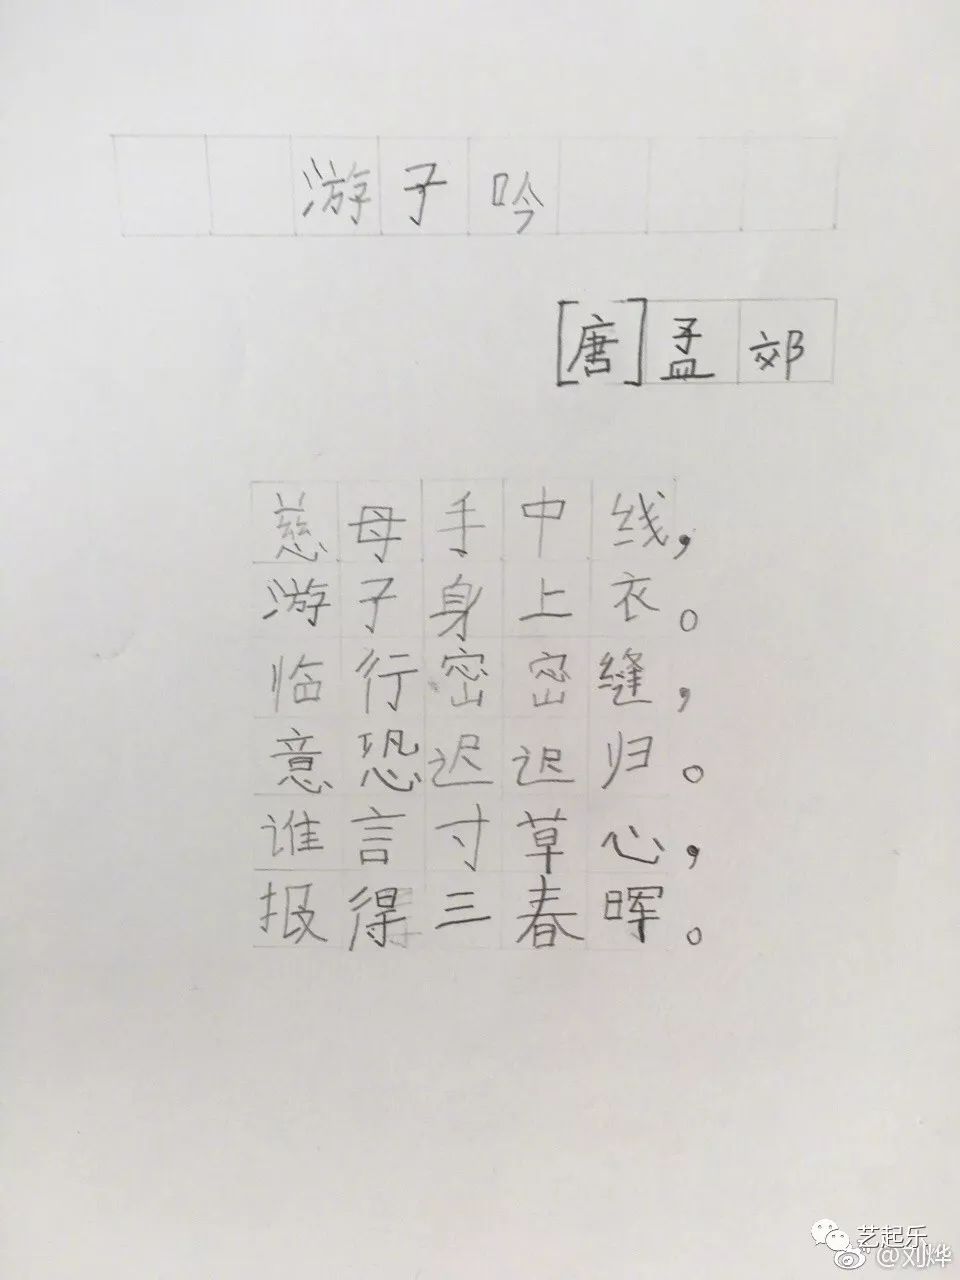 游子吟
[唐]孟郊
慈母手中线，
游子身上衣。
临行密密缝，
意恐迟迟归。
谁言寸草心，
报得三春晖。
艺起乐
@刘烨